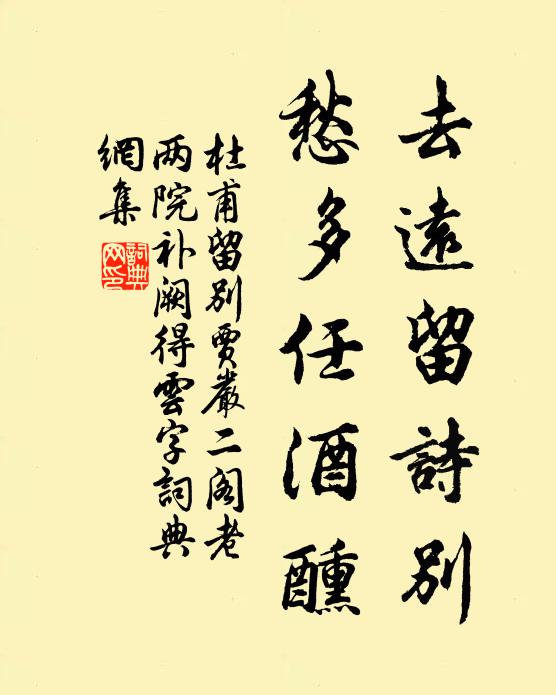 去遠留詩別
愁多任酒醺
杜甫留别賈嚴二阁老
两院补阙得雲字詞典
網集
詞典
网印